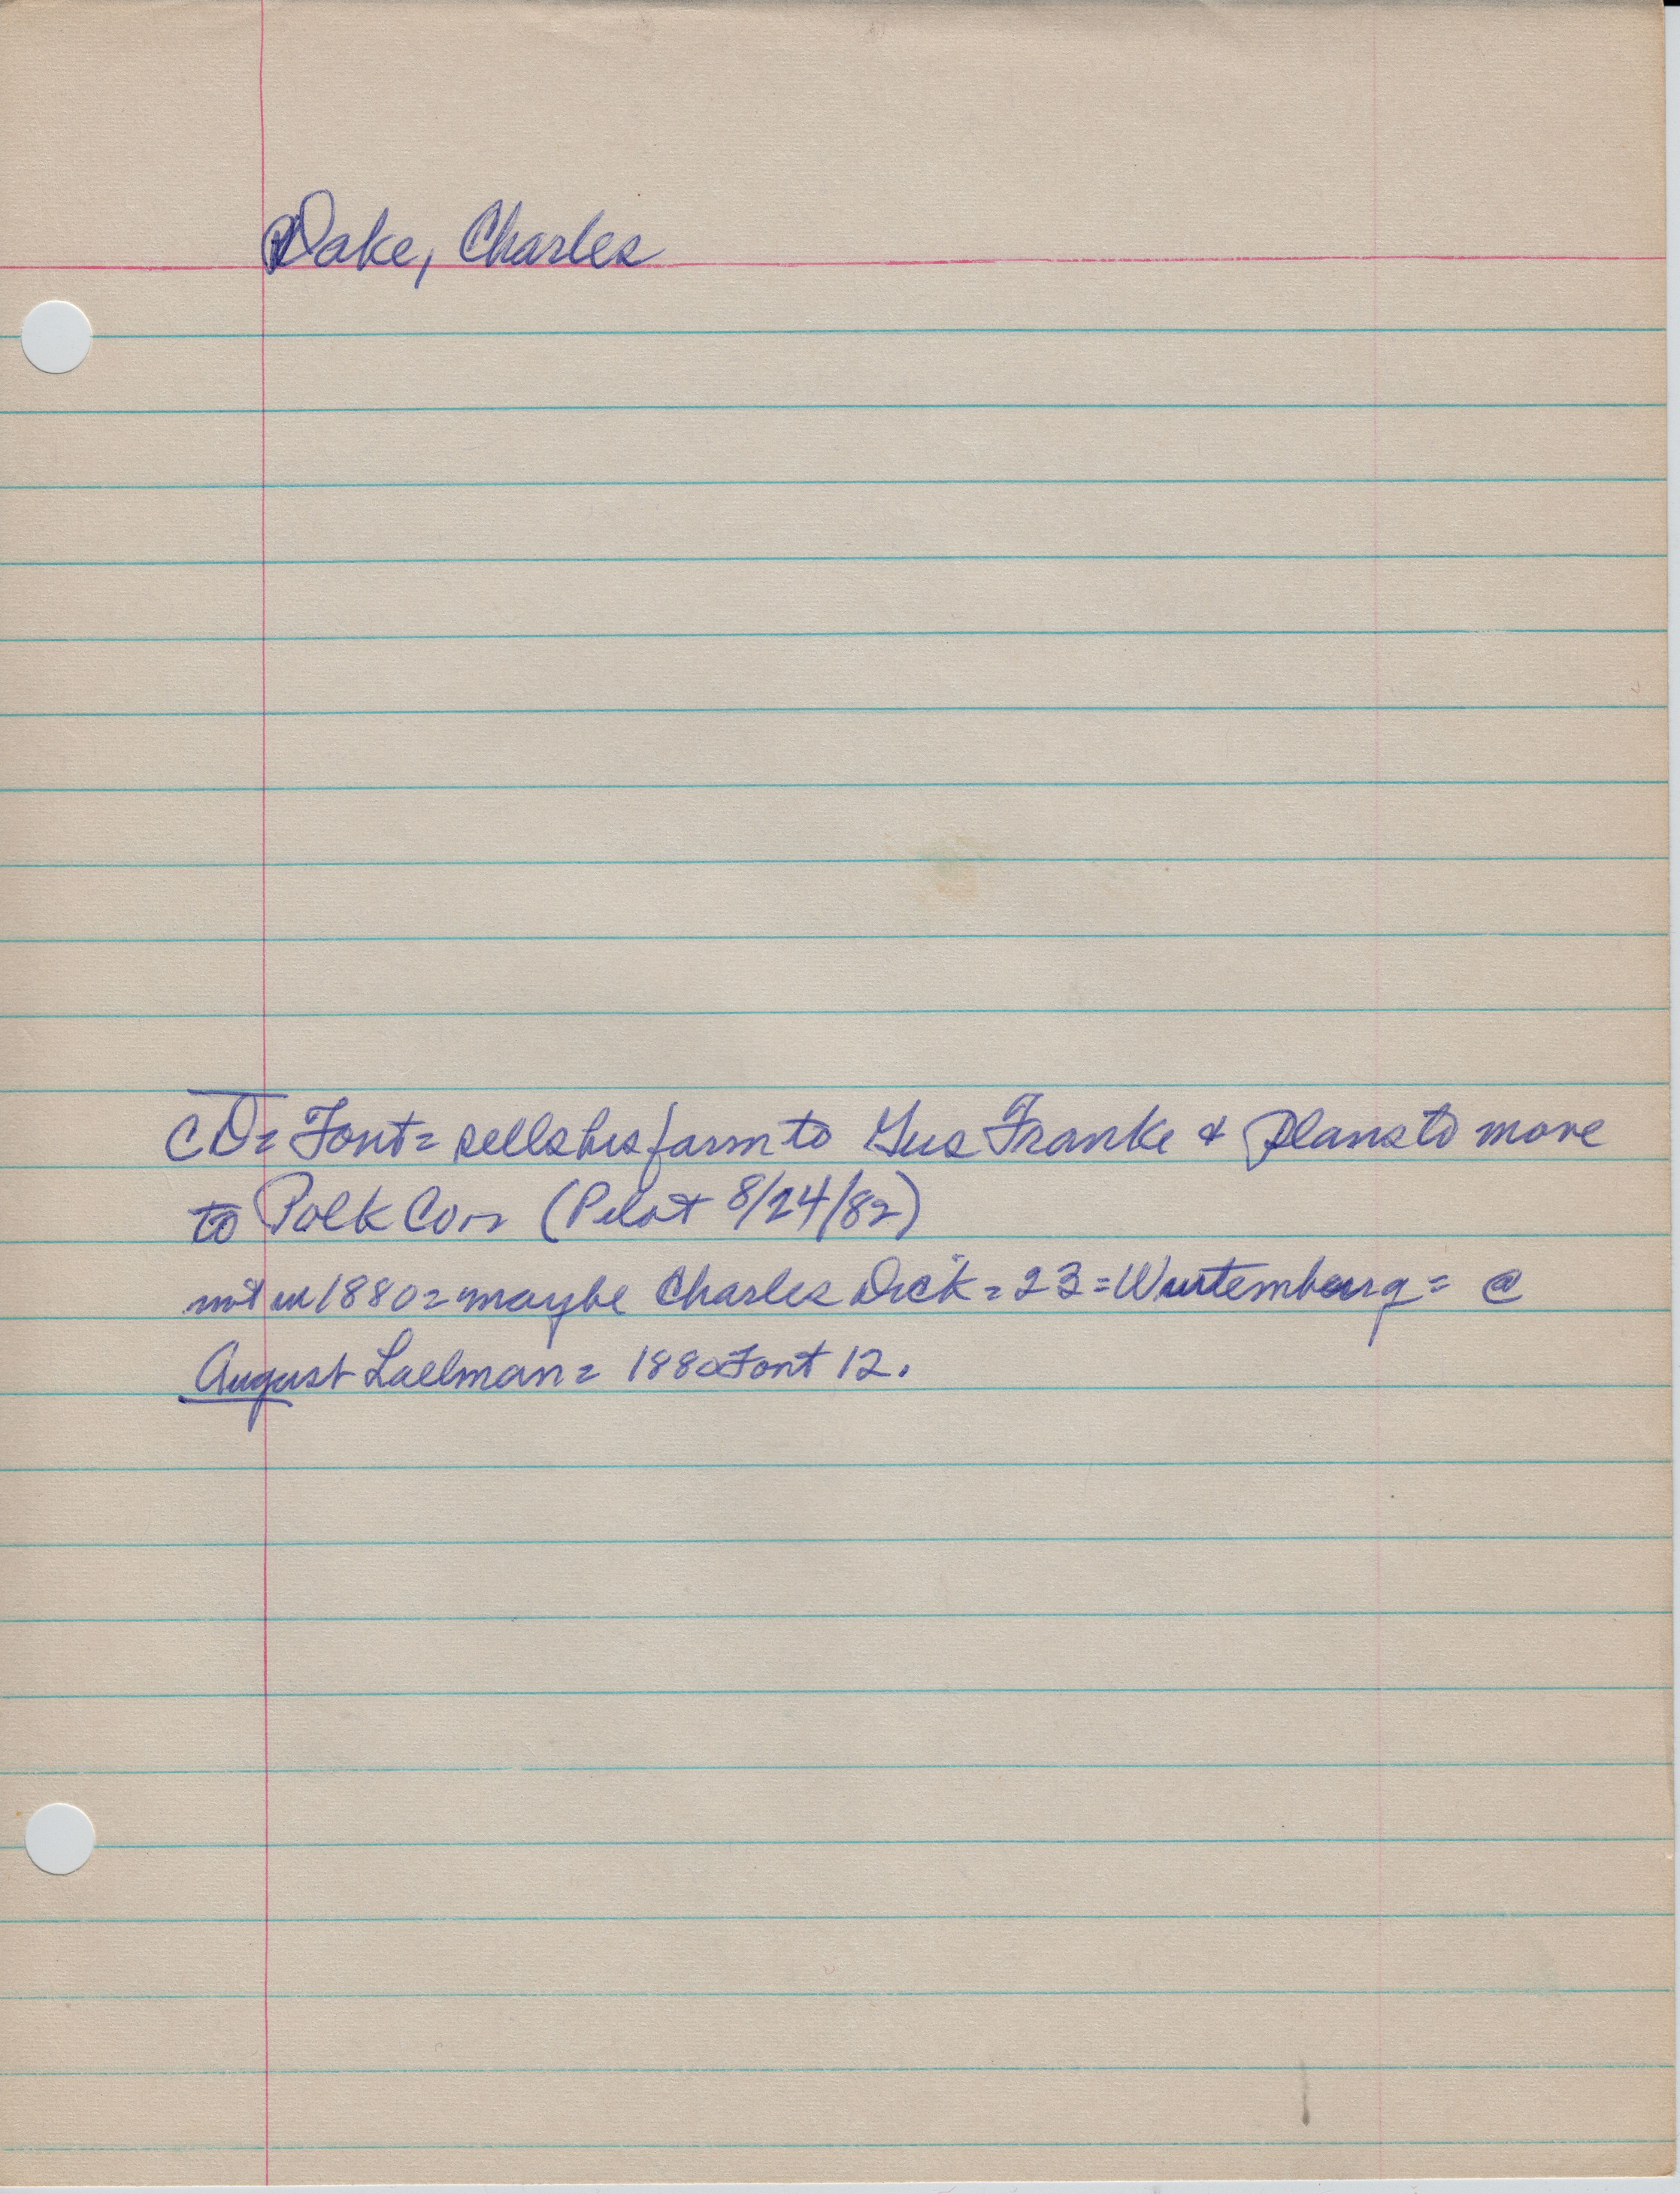 Dake, Charles
CD= Font= sells his farm to Gus Franke & plans to move
to Polk Co (Pilot 8/24/82)
not in 1880= maybe Charles Dick= 23= Wurtemburg= @
August Laelman= 1880 Font 12.